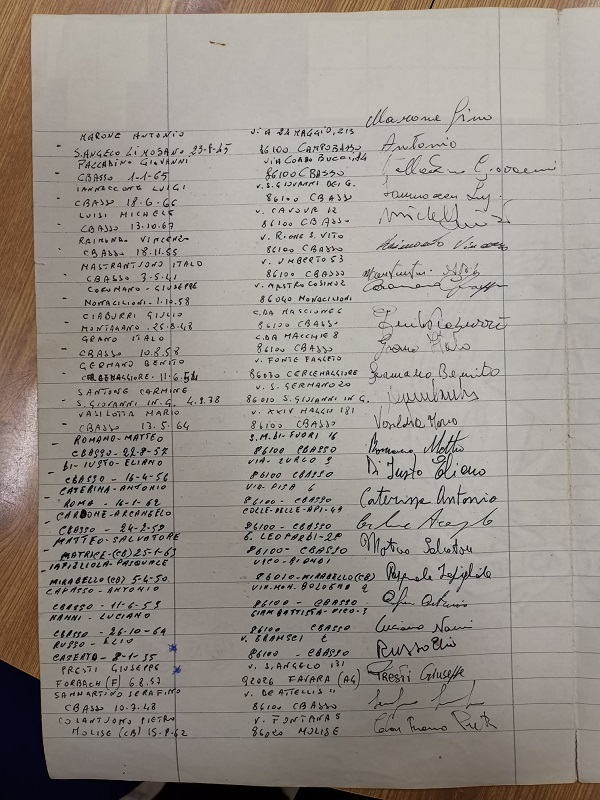 MARONE ANTONIO VIA 24 MAGGIO, 213 Marone Gino
S. ANGELO LIMOSANO 23-8-45 86100 CAMPOBASSO Antonio
PALLADINO GIOVANNI VIA CORSO BUCCI, 14
CBASSO 1-1-65 86100 CBASSO Giovanni
IANNACCONE LUIGI V.S. GIOVANNI DEI G.
CBASSO 18-6-66 86100 CBASSO
LUISI MICHELE V. CAVOUR 12
CBASSO 13.10.67 86100 CBASSO
RAIMONDO VINCENZO V. RIONE S. VITO
CBASSO 18.11.55 86100 CBASSO Raimondo Vincenzo
MASTRANTUONO ITALO V. UMBERTO 53
CBASSO 3-5-41 86100 CBASSO
COROMANO - GIUSEPPE V. MASTRO COSIMO 2
MONACILIONI. 1.10.58 86040 MONACILIONI
CIABURRI GIULIO C.DA MASCIONE 6
MONTAGANO. 25.8.48 86100 CBASSO
GRANO ITALO C.DA MACCHIE 8
CBASSO 10.8.58 86100 CBASSO Grano Italo
GERMANO BENITO V. FONTE FAGLETO
CERCEMAGGIORE. 11-6.51 86030 CERCEMAGGIORE Germano Benito
SANTONE CARMINE V. S. GERMANO 20
S. GIOVANNI IN G. 4.9.38 86010 S. GIOIANNI IN G.
VASILOTTA MARIO V. XXIV MAGGIO 181
CBASSO 13.5.64 86100 CBASSO
ROMANO - MATTEO S.M. DI FUORI 16
CBASSO - 22-8-57 86100 CBASSO Romano Matteo
DI - IUSTO - ELIANO VIA - ZURLO 9
CBASSO - 16-4-56 86100 CBASSO Di Iusto Eliano
CATERINA - ANTONIO VIA PISA 6
ROMA - 16-1-62 86100 - CBASSO Caterina Antonio
CARBONE - ARCANGELO COLLE - DELLE - API - 49
CBASSO - 24-2-59 86100 - CBASSO
MATTEO - SALVATORE G. LEOPARDI - 28
MATRICE - (CB) 25-1-63 86100 - CBASSO Matteo Salvatore
IAPIGLIOLA - PASQUALE VICO - BIONDI
MIRABELLO (CB) 5-4-50. 86010 - MIRABELLO (CB)
CAPASSO - ANTONIO VIA. MON. BOLOGNA 9
CBASSO - 11-6-53 86100 - CBASSO
NANNI - LUCIANO GIAMBATTISTA - VICO - 3
CBASSO - 26-10-64 86100 CBASSO Luciano Nanni
RUSSO - ELIO V. GRAMSCI
CASERTA - 8-1-35 86100 - CBASSO Russo Elio
PRESTI GIUSEPPE V. S. ANGELO 131
FORBACH (F) 6.8.57 92026 FAVARA (AG) Presti Giuseppe
SAMMARTINO SERAFINO V. DE ATTELLIS
CBASSO 10.7.48 86100 CBASSO
COLANTUONO PIETRO V. FONTANA 5
MOLISE (CB) 15-9.62 86020 MOLISE